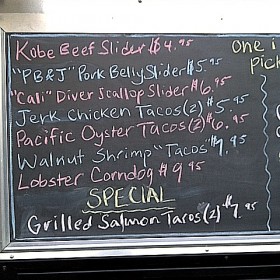 Kobe Beef Slider $4.95
"PB&J" Pork Belly Slider $5.95
"Cali" Diver Scallop Slider $6.95
Jerk Chicken Tacos (2) $5.95
Pacific Oyster Tacos (2) $6.95
Walnut Shrimp "Tacos" $7.95
Lobster Corndog $9.95
SPECIAL
Grilled Salmon Tacos (2) $7.95
one i
pick